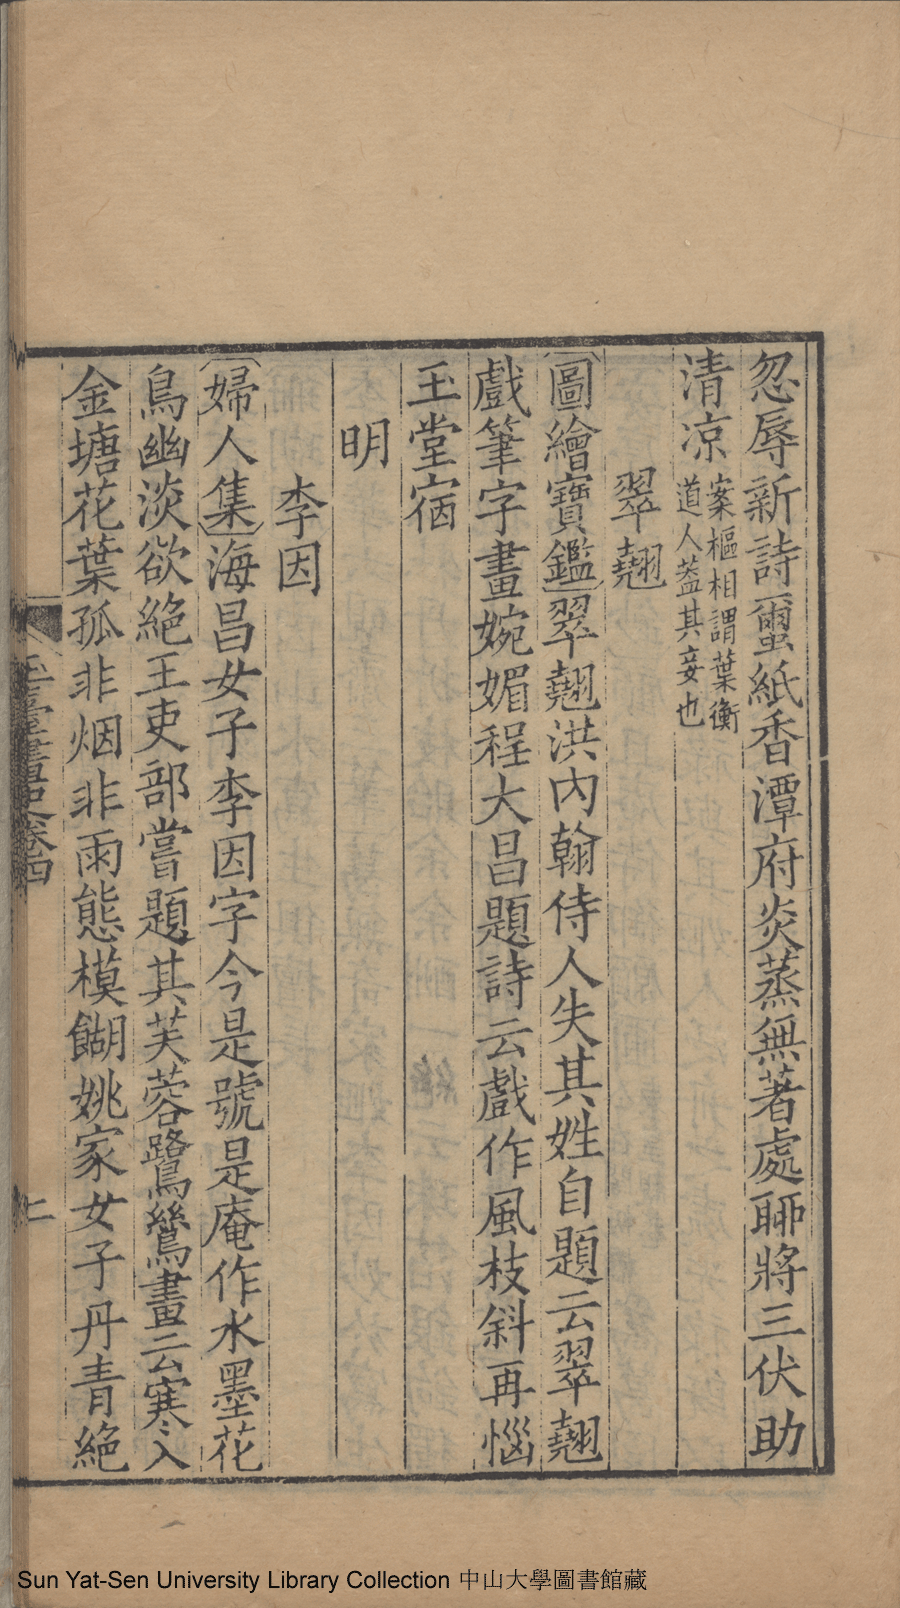 忽辱新詩蠒紙香潭府炎蒸無著處聊將三伏助
清凉案樞相謂葉衡道人葢其妾也
翠翹
〔圖繪寶鑑〕翠翹洪內翰侍人失其姓自題云翠翹
戲筆字畫婉媚程大昌題詩云戲作風枝斜再惱
玉堂宿
明
李因
〔婦人集〕海昌女子李因字今是號是庵作水墨花
鳥幽淡欲絕王吏部嘗題其芙蓉鷺鷥畫云寒入
金塘花葉孤非烟非雨態模餬姚家女子丹青絕
玉臺書史卷四
Sun Yat-Sen University Library Collection 中山大學圖書館藏